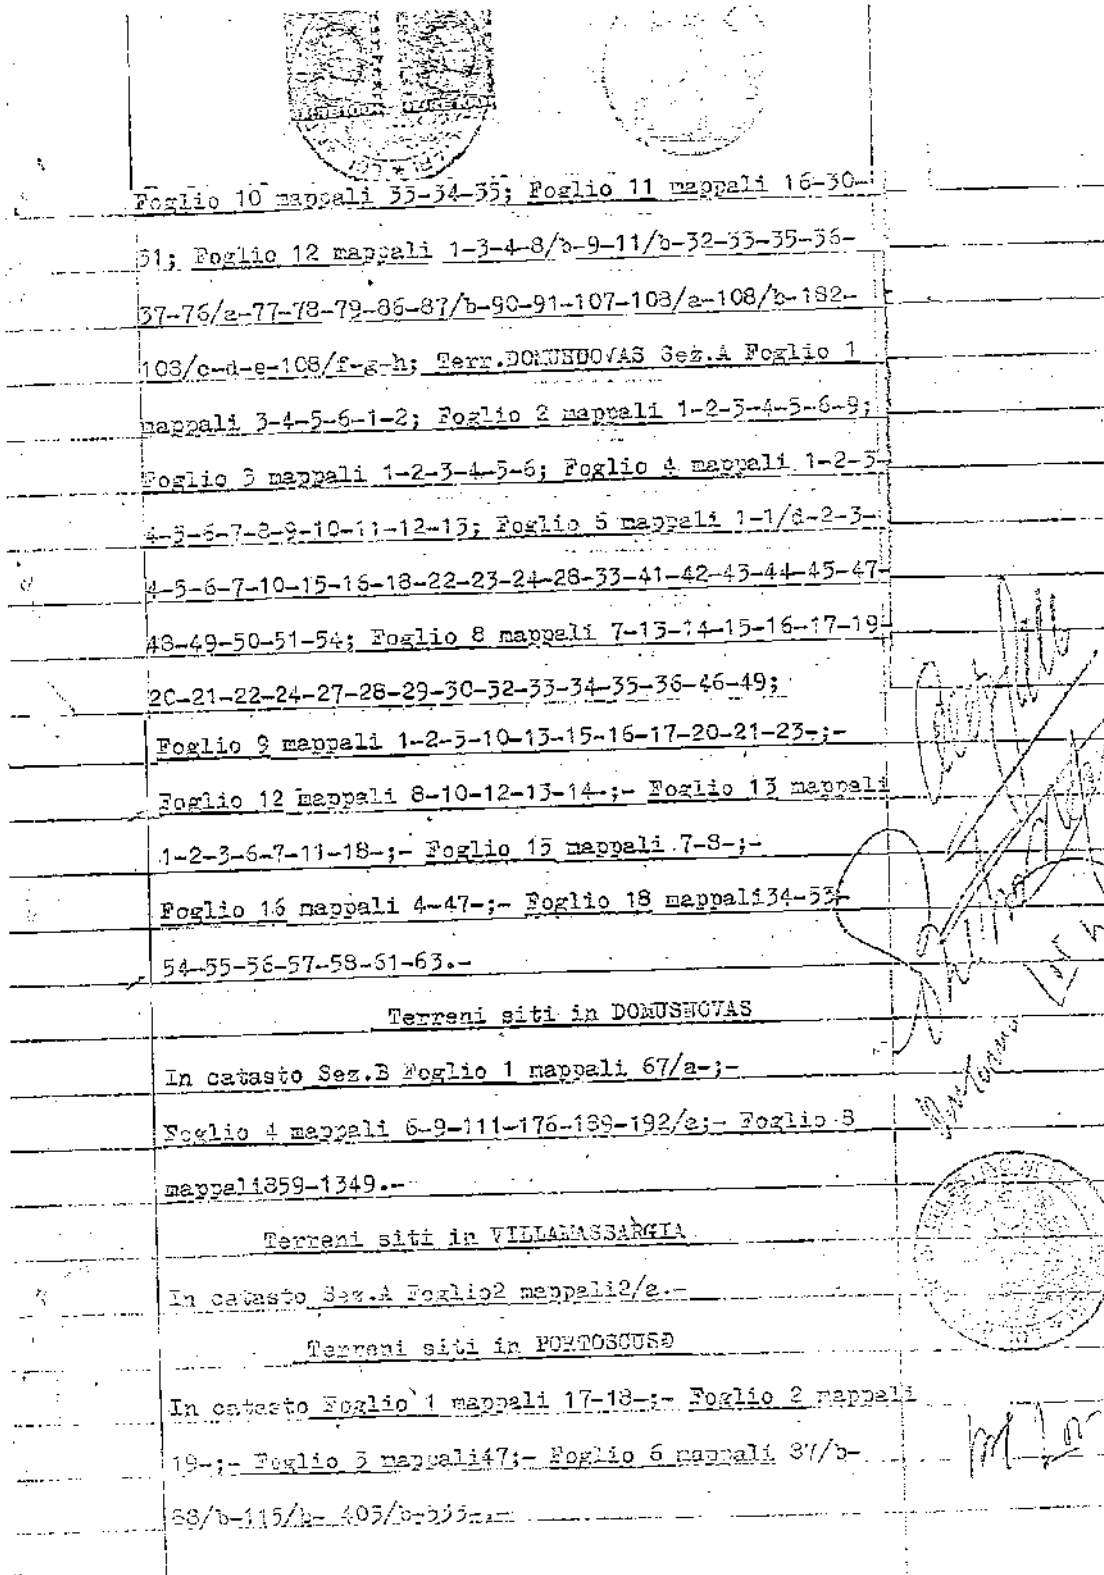 Foglio 10 mappali 33-34-35; Foglio 11 mappali 16-30-
31; Foglio 12 mappali 1-3-4-8/b-9-11/b-32-33-35-36-
37-76/a-77-78-79-86-87/b-90-91-107-108/a-108/b-182-
108/c-d-e-108/f-g-h; Terr.DOMUSNOVAS Sez.A Foglio 1
mappali 3-4-5-6-1-2; Foglio 2 mappali 1-2-3-4-5-6-9;
Foglio 3 mappali 1-2-3-4-5-6; Foglio 4 mappali 1-2-3-
4-5-6-7-8-9-10-11-12-13; Foglio 6 mappali 1-1/d-2-3-
4-5-6-7-10-15-16-18-22-23-24-28-33-41-42-43-44-45-47-
48-49-50-51-54; Foglio 8 mappali 7-13-14-15-16-17-19
20-21-22-24-27-28-29-30-32-33-34-35-36-46-49;
Foglio 9 mappali 1-2-3-10-13-15-16-17-20-21-23-;-
Foglio 12 mappali 8-10-12-13-14-;- Foglio 13 mappali
1-2-3-6-7-11-18-;- Foglio 15 mappali 7-8-;-
Foglio 16 mappali 4-47-;- Foglio 18 mappali34-53-
54-55-56-57-58-61-63.-
Terreni siti in DOMUSNOVAS
In catasto Sez.B Foglio 1 mappali 67/a-;-
Foglio 4 mappali 6-9-111-176-189-192/a;- Foglio 8
mappali859-1349.-
Terreni siti in VILLAMASSARGIA
In catasto Sez.A Foglio2 mappali2/a.-
Terreni siti in PORTOSCUSO
In catasto Foglio 1 mappali 17-18-;- Foglio 2 mappali
19-;- Foglio 3 mappali47;- Foglio 6 mappali 87/b-
88/b-115/b- 405/b-